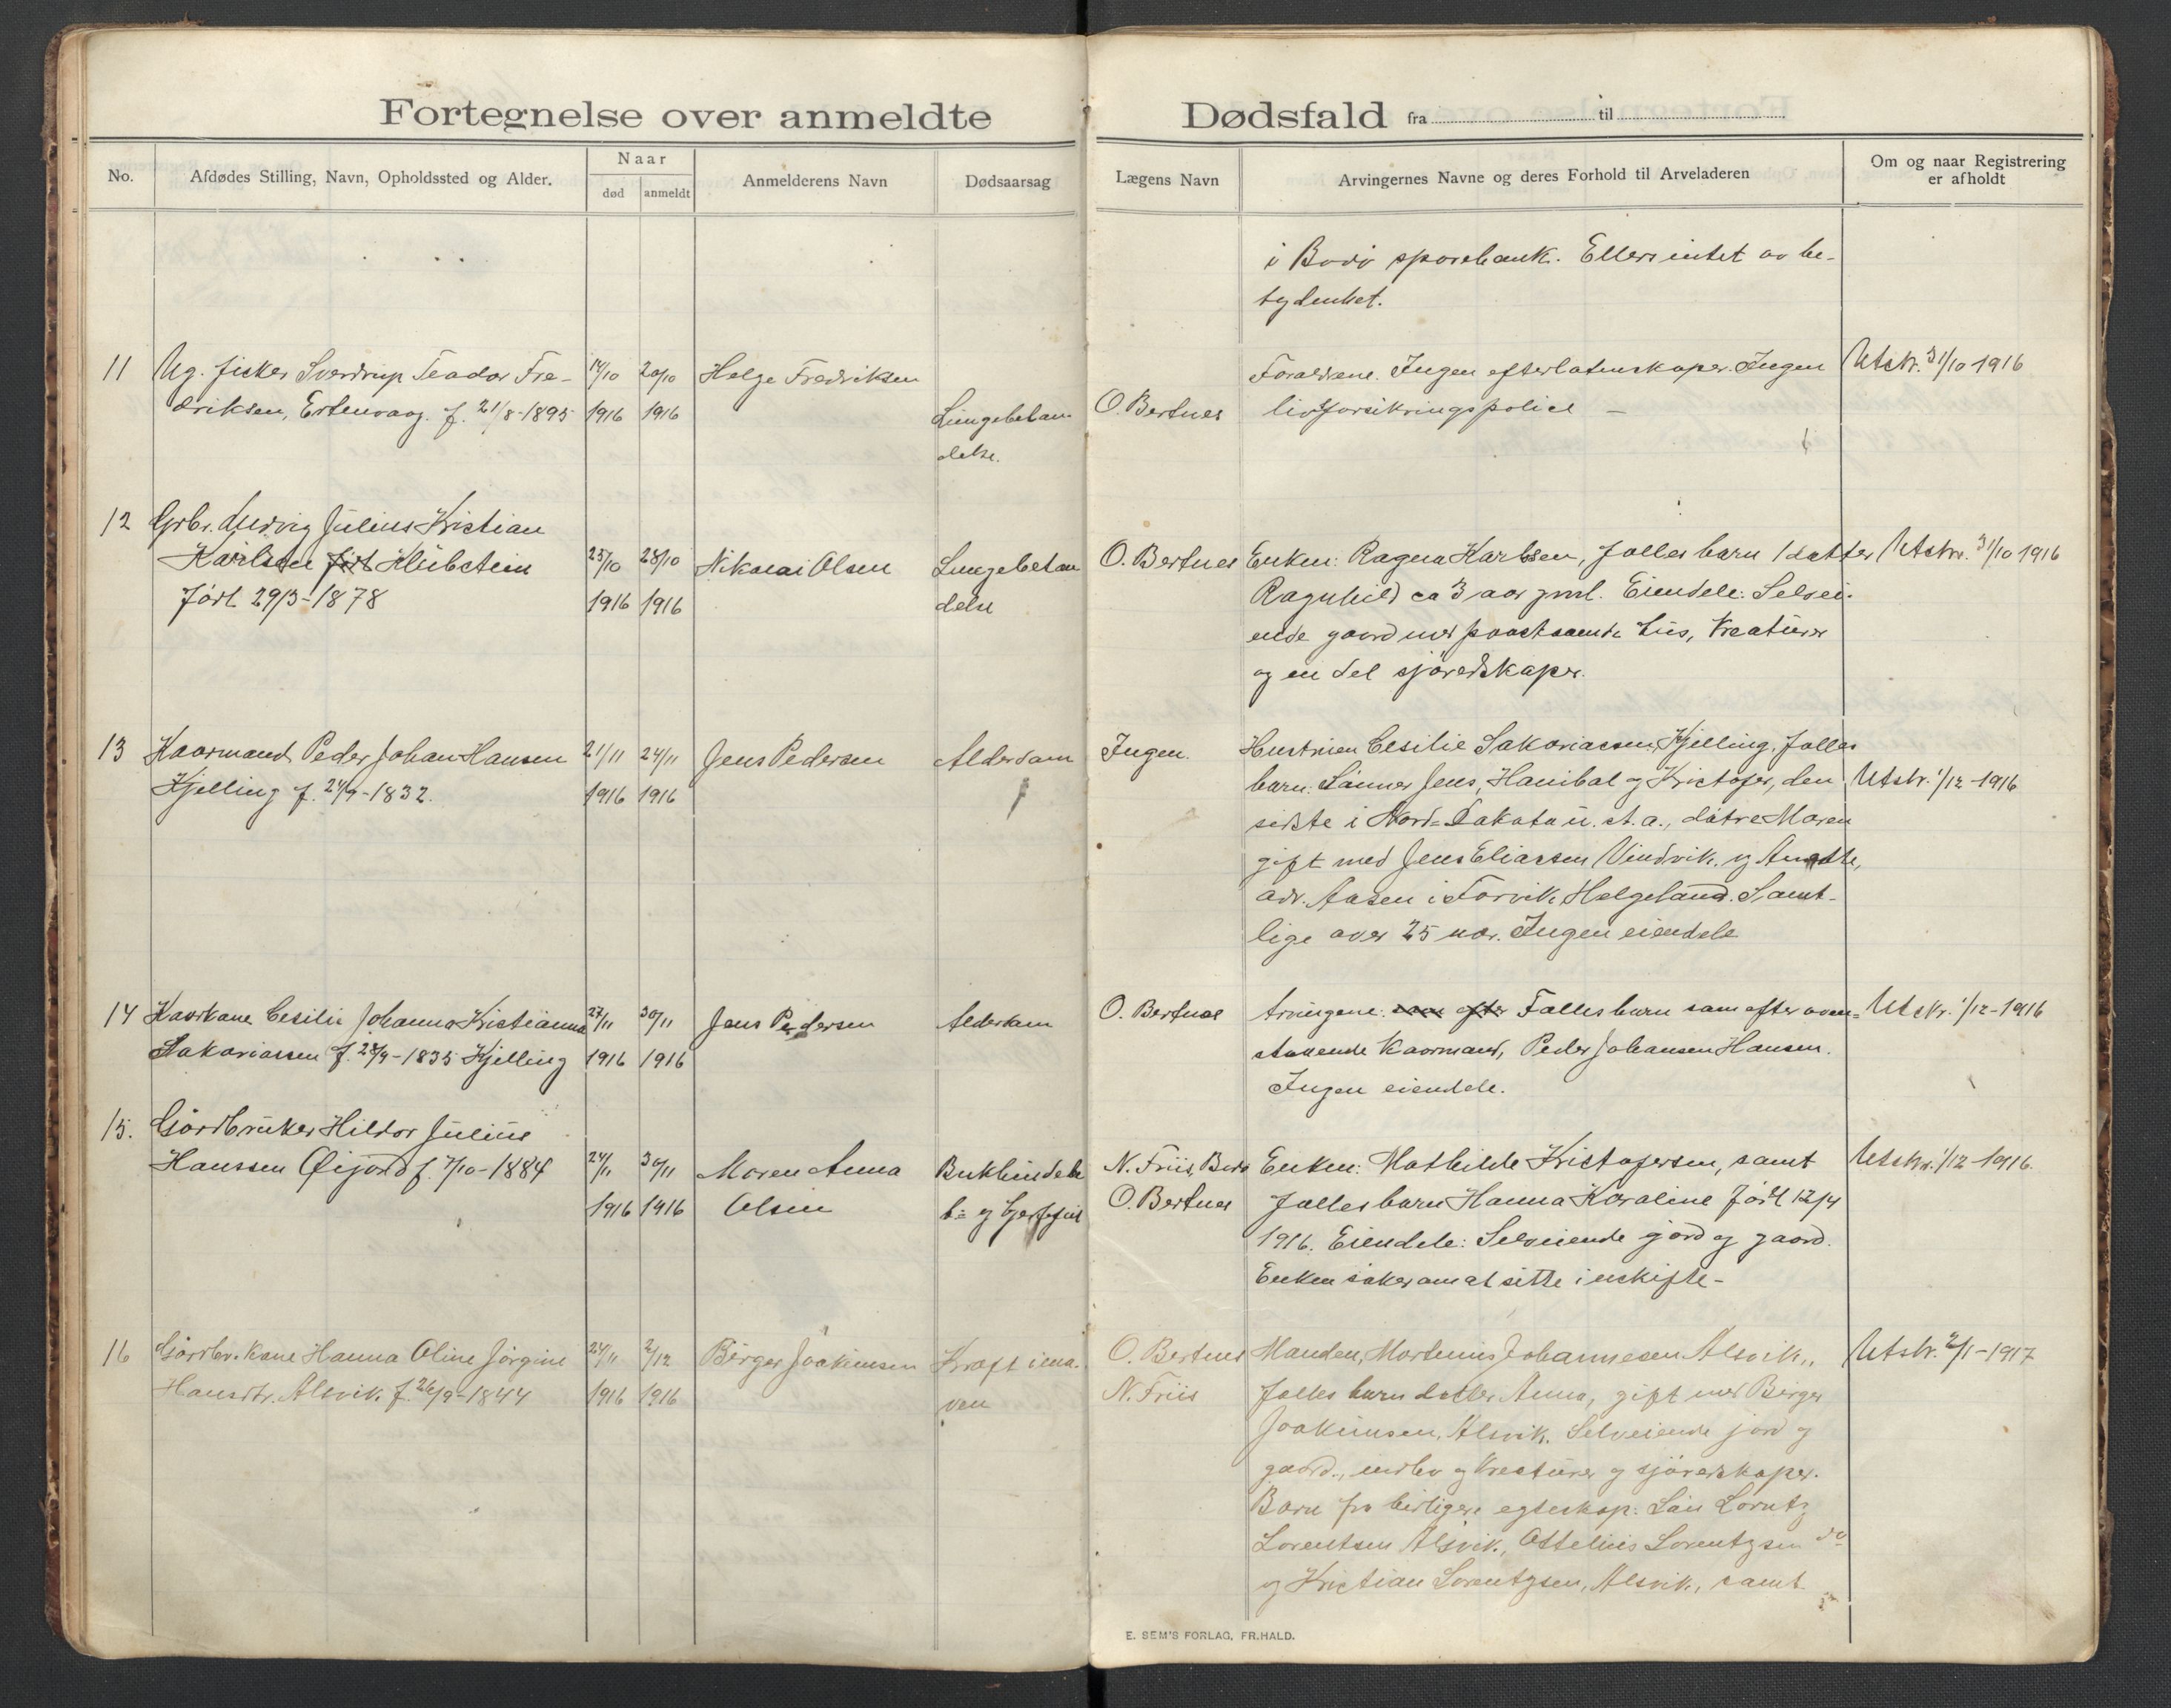 Fortegnelse over anmeldte Dødsfald fra til
No. Afdødes Stilling, Navn, Opholdssted og Alder. Naar død anmeldt Anmelderens Navn Dødsaarsag Lægens Navn Arvingernes Navne og deres Forhold til Arveladeren Om og naar Registrering er afholdt
i Bodö sparebank. Ellers intet av be-
tydenhet.
11 Ug. fisker Sverdrup Teodor Fre- 14/10 20/10 Helge Fredriksen Foraldrene. Ingen efterlatenskaper. Ingen Utskr. 31/10 1916
driksen, Ertenvaag. f. 21/8-1895 1916 1916 Lungebetæn O. Bertnes livsforsikringspolice –
delse.
12 Grbr. Ludvig Julius Kristian
Karlsen Klubstein 25/10 28/10 Nikolai Olsen Lungebetæn O. Bertnes Enken: Ragna Karlsen, Fællesbarn 1 datter Utskr. 31/10 1916
Född 29/3-1878 1916 1916 delse Ragnhild ca 3 aar gml. Eiendele: Selvei-
ende gaard med paastaaende hus, kreaturer
og en del sjöredskaper.
13 Kaarmand Peder Johan Hansen 21/11 24/11 Jens Pedersen Alderdom Ingen. Hustruen Cesilie Sakariassen, Kjelling. Fælles
Kjelling f. 24/9-1832. 1916 1916 barn: Sönner Jens, Hanibal og Kristofer, den Utskr. 1/12-1916
sidste i Nord-Dakota u. st. a., dötre Maren
gift med Jens Eliassen Vindvik. og Anette,
adr. Aasen i Forvik, Helgeland. Samt-
lige over 25 aar. Ingen eiendele
14 Kaarkone Cesilie Johanna Kristianna 27/11 30/11 Jens Pedersen Alderdom O. Bertnes Arvingene: som efter Fællesbarn som efter oven- Utskr. 1/12-1916
Sakariassen f. 28/9-1835 Kjelling 1916 1916 staaende kaarmand, Peder Johansen Hansen.
Ingen eiendele.
15. Gårdbruker Hildor Julius
Hanssen Öijord f. 7/10-1884 24/11 30/11 Maren Anna Bukhindebe N. Friis, Bodö Enken: Mathilde Kristofersen, samt Utskr. 1/12-1916.
1916 1916 Olsen O. Bertnes Fællesbarn Hanna Karoline född 12/4
1916. Eiendele: Selveiende jord og gaard.
Enken söker om at sitte i uskifte-
16 Gårdbr. kone Hanna Oline Jörgine 24/11 2/12 Birger Joakimsen Kræft i ma- O. Bertnes Manden, Martinus Johannesen Alsvik,, Utskr. 2/1-1917
Hansdtr. Alsvik f. 26/9-1844 1916 1916 ven N. Friis Fælles barn datter Anna, gift med Birger
Joakimsen, Alsvik. Selveiende jord og
gaard., indbo og kreaturer og sjöredskaper.
Barn fra tidligere egteskap: Sön Lorntz
Lorentsen Alsvik., Ottelius Lorentzsen do
og Kristian Lorentzsen, Alsvik, samt
E. SEM'S FORLAG, FR.HALD.